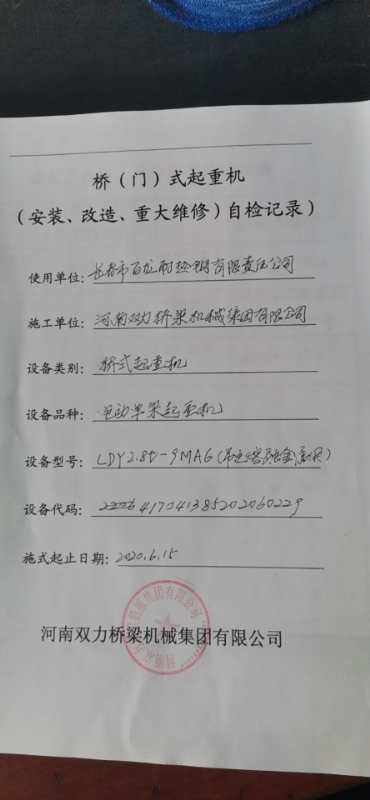 桥（门）式起重机
（安装、改造、重大维修）自检记录）
使用单位：长春市百龙耐 有限责任公司
施工单位：河南双力桥梁机械集团有限公司
设备类别：桥式起重机
设备品种：电动单梁起重机
设备型号：LDY2.8t-9MA6(
设备代码：417041385202060229
施式起止日期：2020.6.15
河南双力桥梁机械集团有限公司